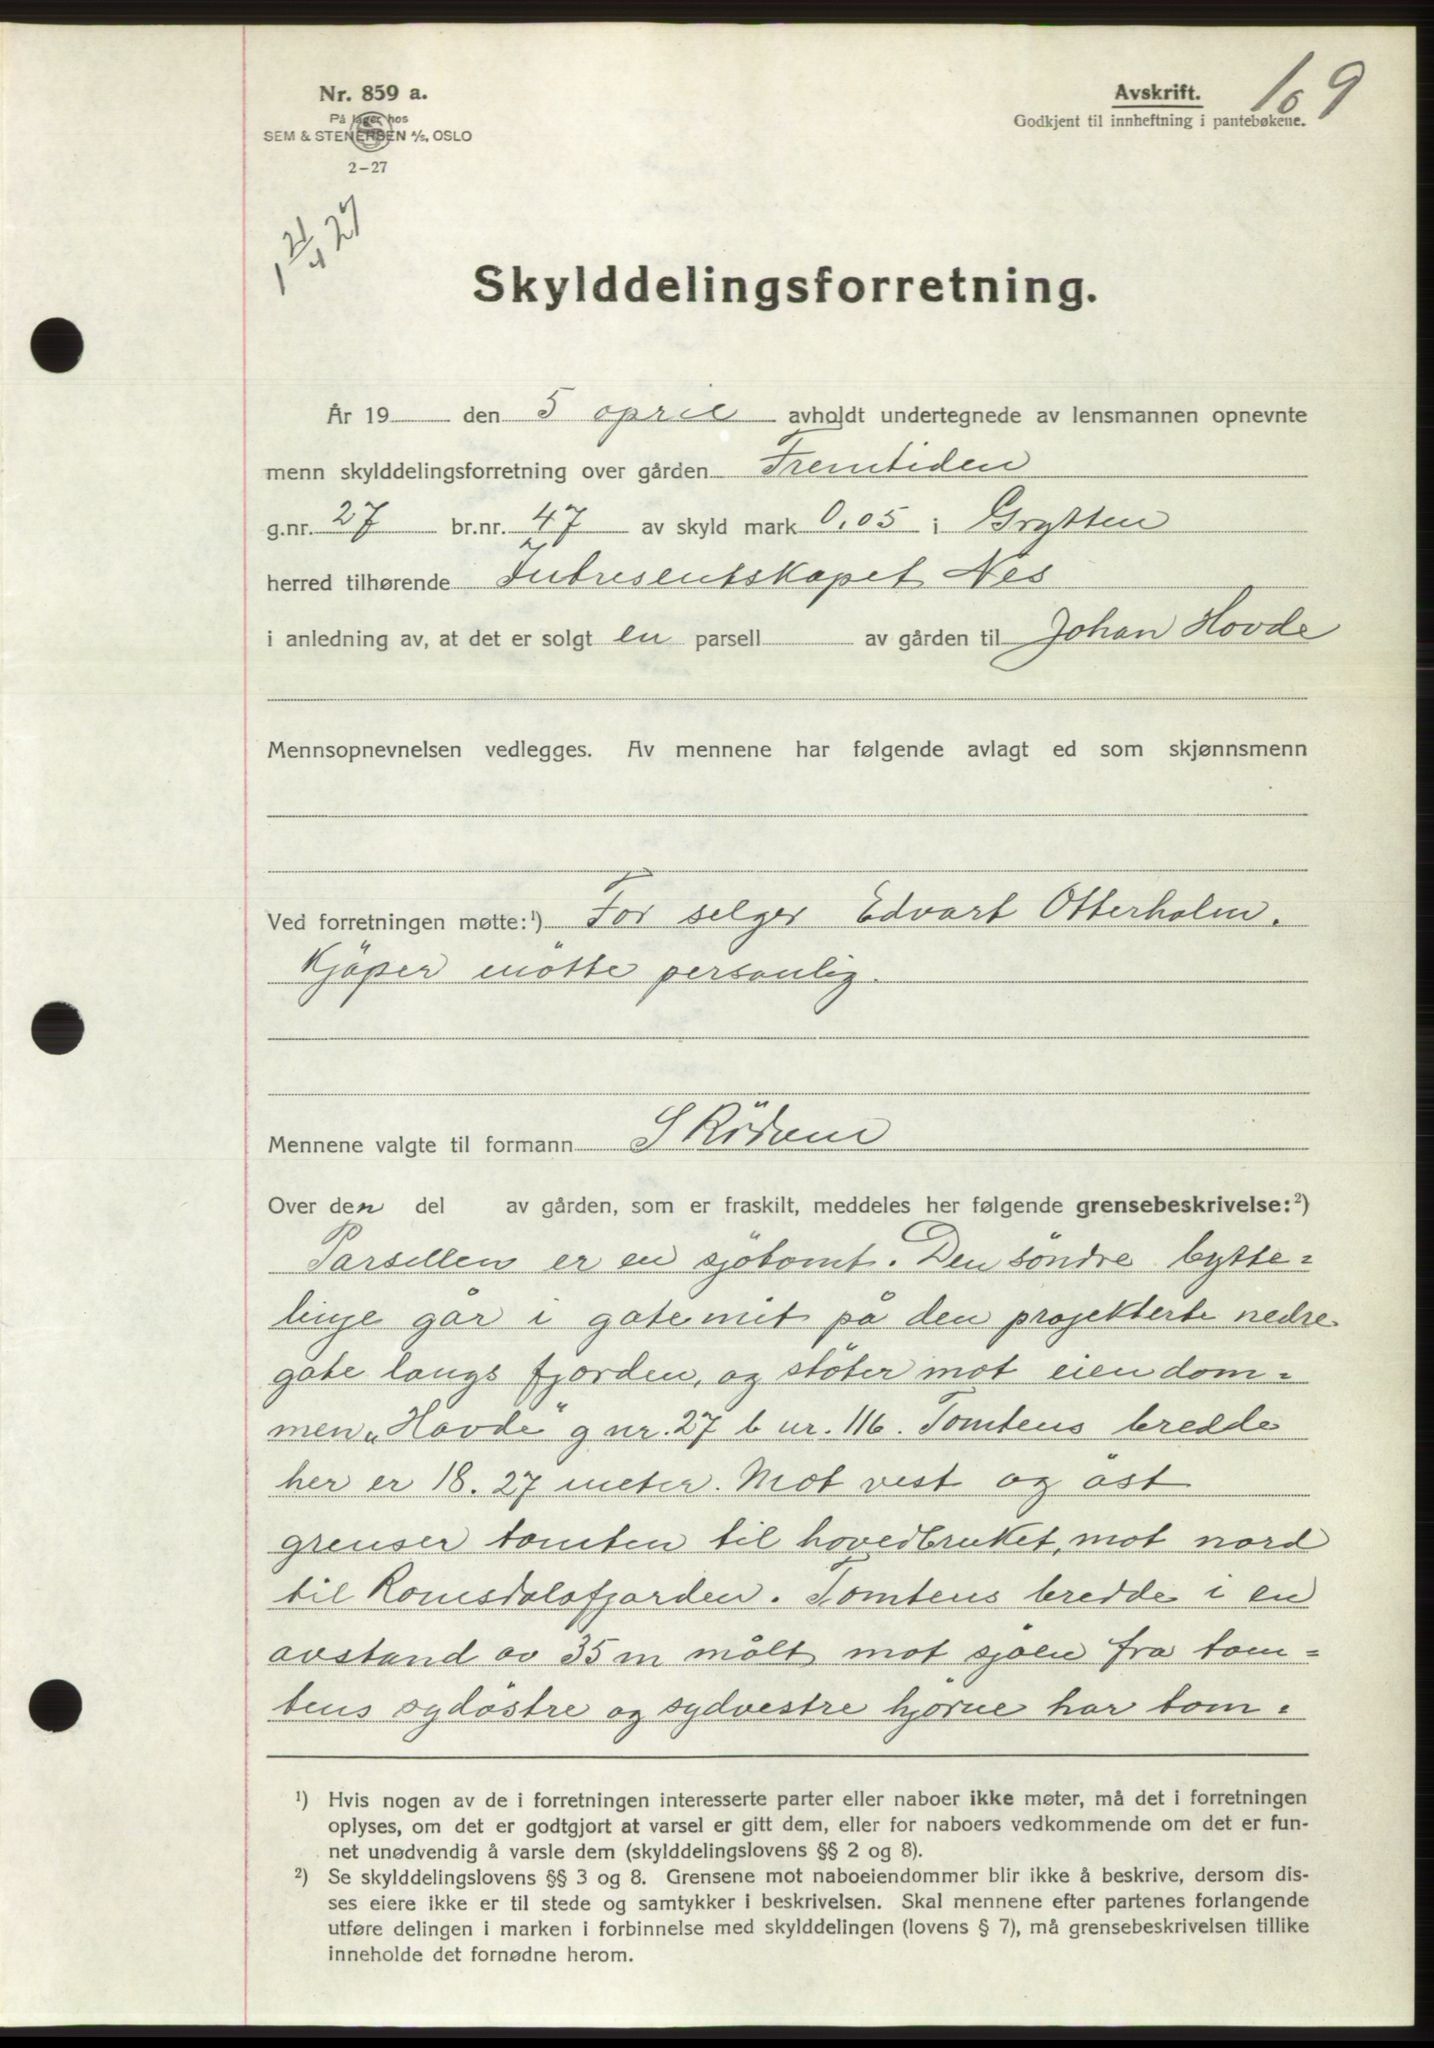 Nr. 859 a.
På lager hos
SEM & STENERSEN A/S, OSLO
2-27
Avskrift.
Godkjent til innheftning i pantebøkene.
169
1 21/4 27
Skylddelingsforretning.
År 19 den 5 april avholdt undertegnede av lensmannen opnevnte
menn skylddelingsforretning over gården Fremtiden
g.nr. 27 br.nr. 47 av skyld mark 0,05 i Grytten
herred tilhørende Intresentskapet Nes
i anledning av, at det er solgt en parsell av gården til Johan Hovde
Mennsopnevnelsen vedlegges. Av mennene har følgende avlagt ed som skjønnsmenn
Ved forretningen møtte:¹) For selger Edvart Otterholm.
Kjöper mötte personlig.
Mennene valgte til formann S Rödven
Over den del av gården, som er fraskilt, meddeles her følgende grensebeskrivelse:²)
Parsellen er en sjötomt. Den söndre bytte=
linje går i gatemit på den projekterte nedre
gate langs fjorden, og stöter mot eiendom=
men „Hovde“ g nr. 27 b nr. 116. Tomtens bredde
her er 18.27 meter. Mot vest og öst
grenser tomten til hovedbruket, mot nord
til Romsdalsfjorden. Tomtens bredde i en
avstand av 35 m målt mot sjöen fra tom=
tens sydöstre og sydvestre hjörne har tom=
¹) Hvis nogen av de i forretningen interesserte parter eller naboer ikke møter, må det i forretningen
oplyses, om det er godtgjort at varsel er gitt dem, eller for naboers vedkommende om det er fun-
net unødvendig å varsle dem (skylddelingslovens §§ 2 og 8).
²) Se skylddelingslovens §§ 3 og 8. Grensene mot naboeiendommer blir ikke å beskrive, dersom dis-
ses eiere ikke er til stede og samtykker i beskrivelsen. Skal mennene efter partenes forlangende
utføre delingen i marken i forbinnelse med skylddelingen (lovens § 7), må grensebeskrivelsen tillike
inneholde det fornødne herom.